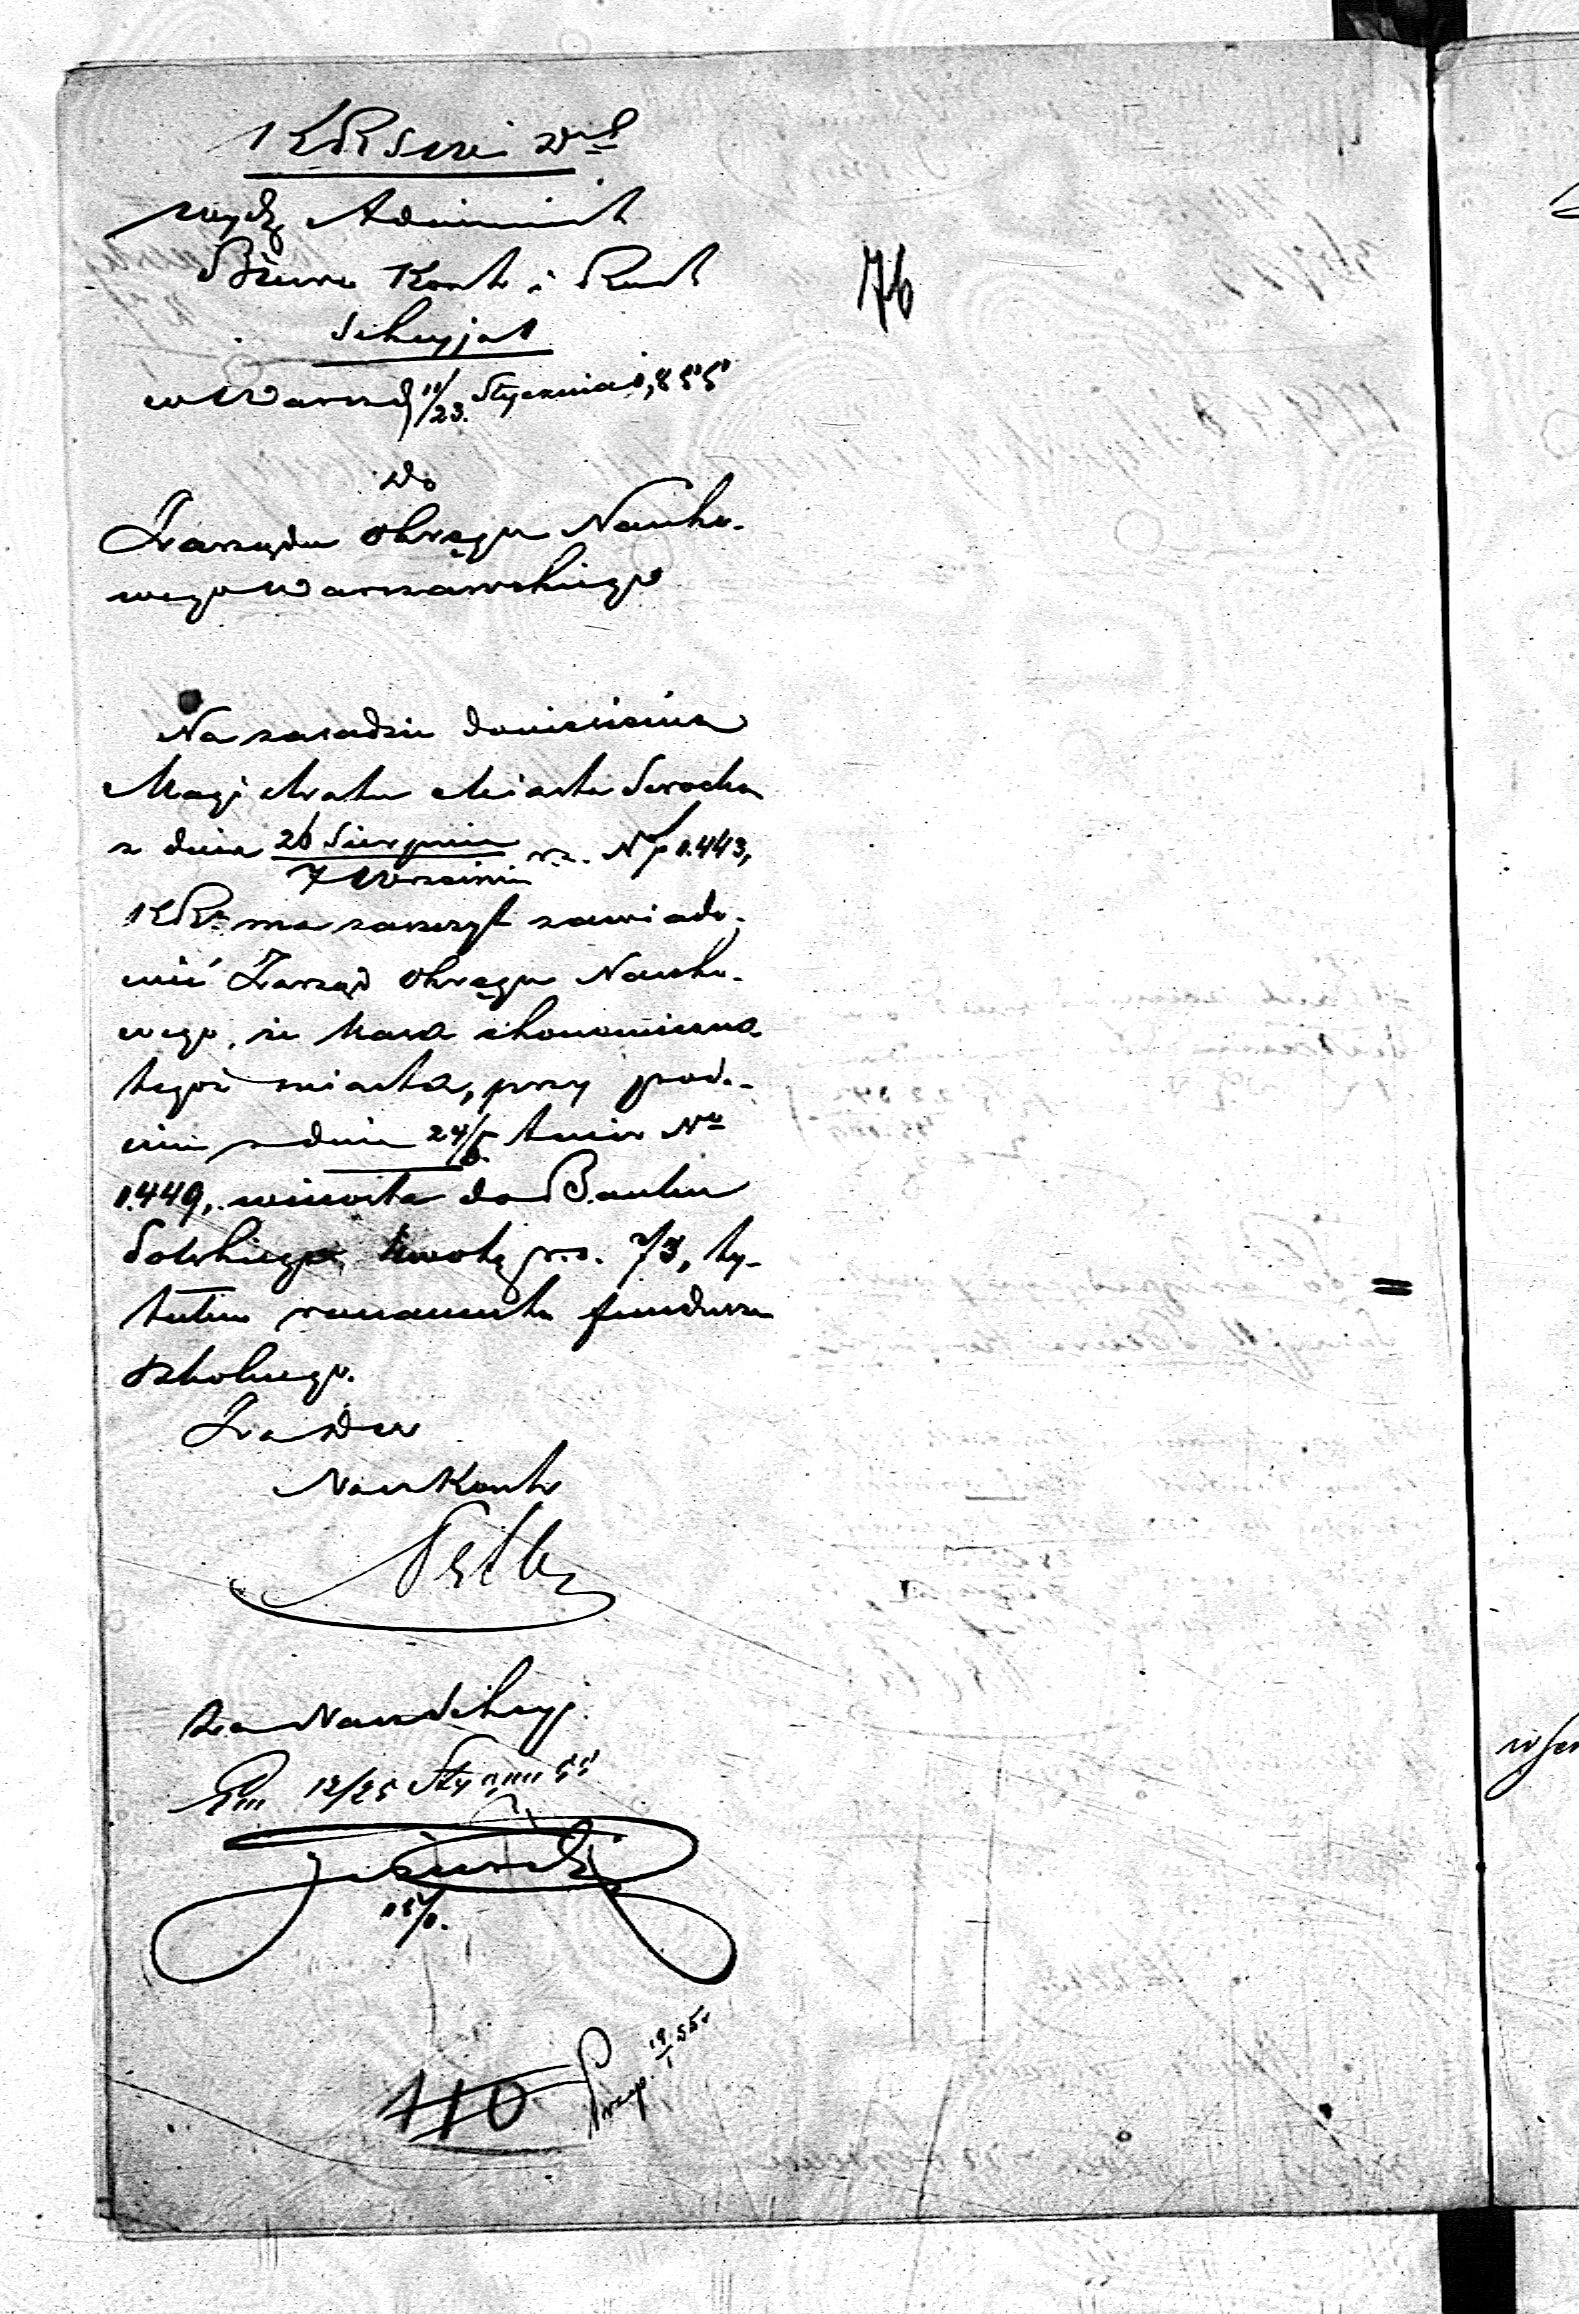 KRSWi D
Wydz Administ
Biuro Kont i Rach
Sekcyja 1
w Warsz d 11/23. Stycznia 1,855
76
Do
Zarządu Okręgu Nauko-
wego Warszawskiego
Na zasadzie doniesienia
Magistratu Miasta Serocka
z dnia 26 Sierpnia / 7 Września r.z. N 1.443,
KR ma zaszczyt zawiado-
mić Zarząd Okręgu Nauko-
wego, że Kassa ekonomiczna
tegoż miasta, przy
z dnia 24/5 N
1.449, wniosła do Banku
Polskiego kwotę rs. 73, ty-
tułem remanentu funduszu
szkolnego.
Za Dw
Nacz Kontr
za Nacz Sekcyj.
12/25 Stycznia 55
110